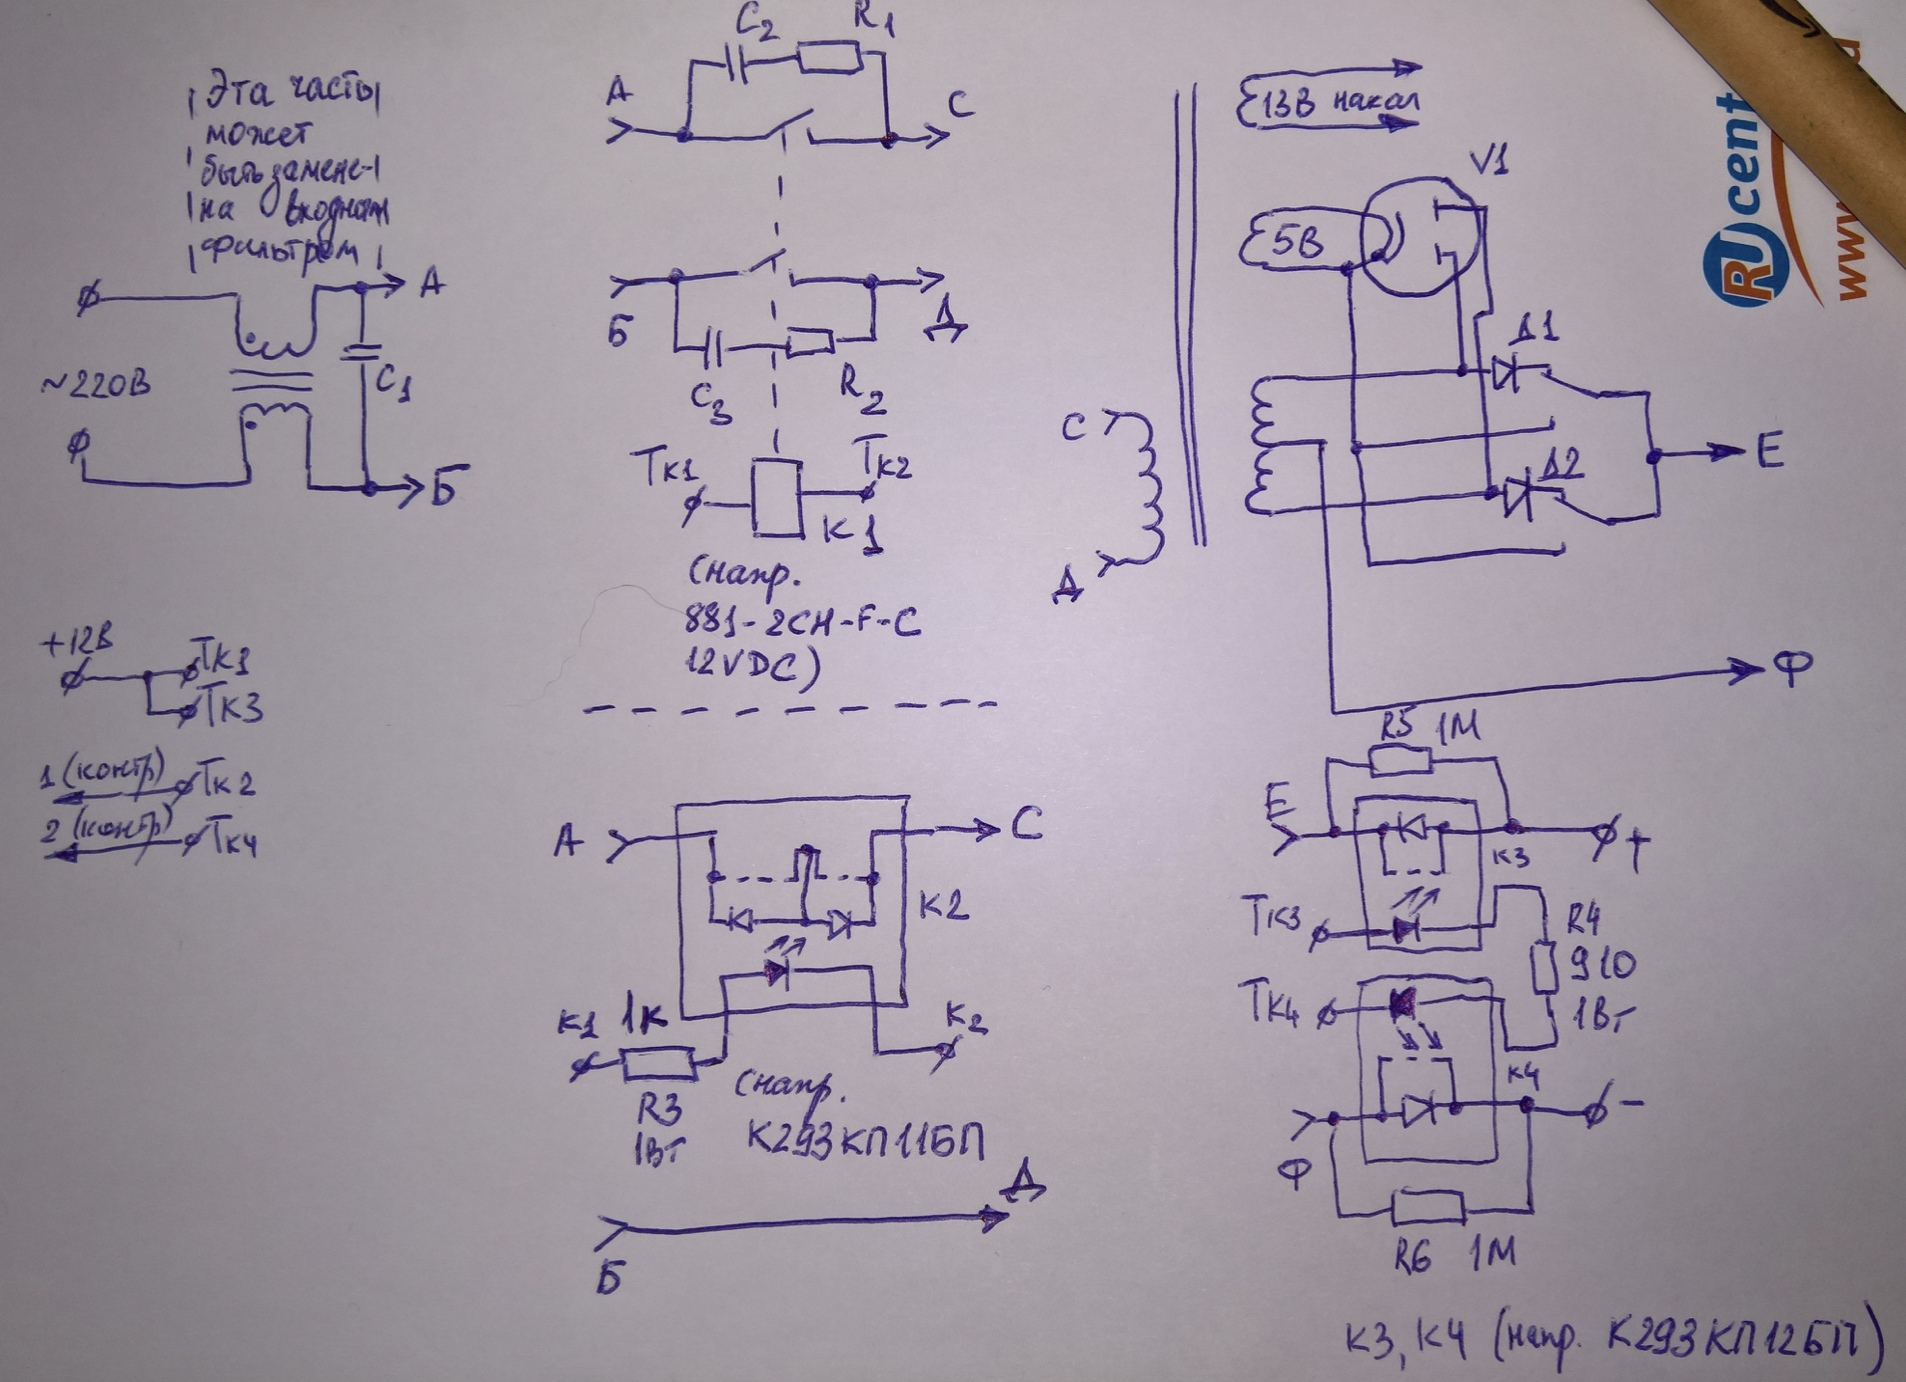 Эта часть
может
быть замене-
на входным
фильтром
~220В
А
Б
C1
C2
R1
А
С
Б
Д
C3
R2
Тк1
Тк2
К1
(напр.
881-2СН-F-C
12VDC)
+12В
Тк1
Тк3
1 (контр)
Тк2
2 (контр)
Тк4
А
С
К2
К1
1К
К2
R3
1Вт
(напр.
К293КП11БП
Б
Д
13В накал
V1
5В
Д1
Д2
С
Д
Е
Ф
R5 1М
Е
К3
+
Тк3
R4
910
1Вт
Тк4
К4
-
Ф
R6 1М
К3, К4 (напр. К293КП12БП)
RUcent
www